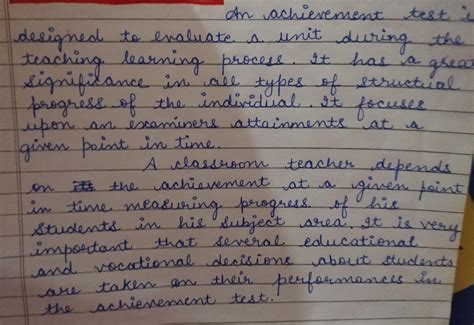 An achievement test is
designed to evaluate a unit during the
teaching learning process. It has a great
significance in all types of structual
progress of the individual. It focuses
upon an examiners attainments at a
given point in time.
A classroom teacher depends
on the achievement at a given point
in time measuring progress of his
students in his subject area. It is very
important that several educational
and vocational decisions about students
are taken on their performances in
the achievement test.